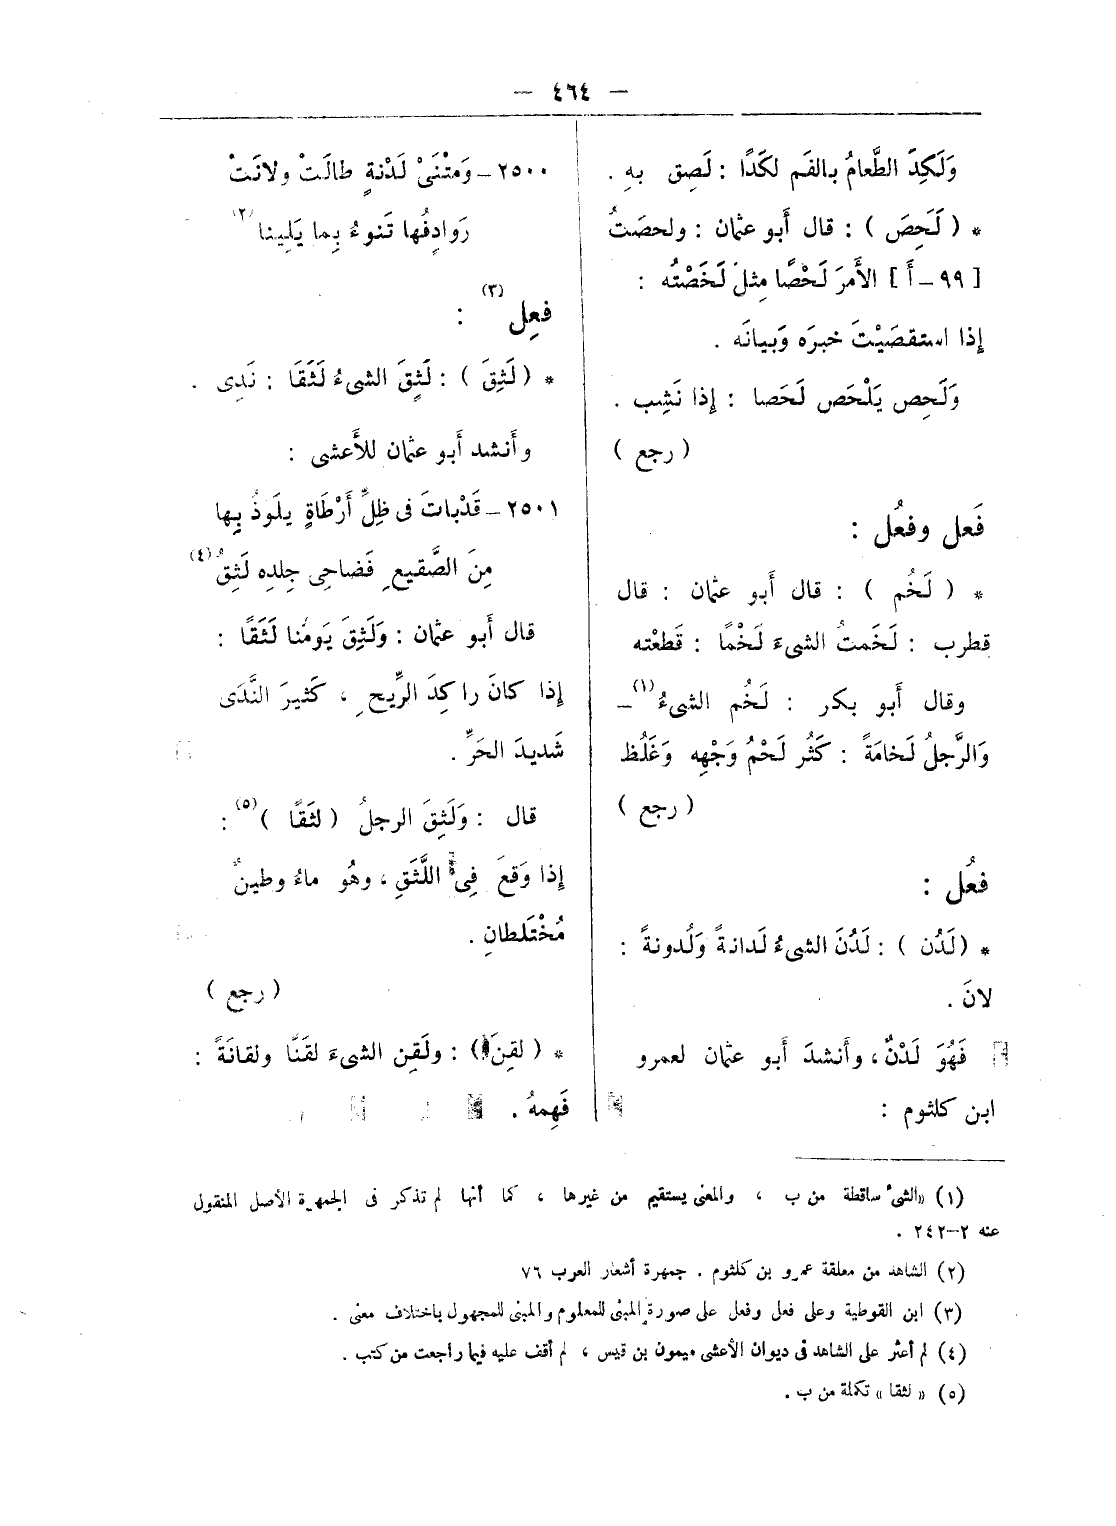 — ٤٦٤ —
وَلَكِدَ الطَّعامُ بالفَم لكَدًا : لَصِق بهِ .
* ( لَحِصَ ) : قال أَبو عثمان : ولحصَتُ
[ ٩٩ – أ ] الأَمرَ لَحْصًا مِثلَ لَخَصْتُه :
إِذا استقصَيْتَ خبرَه وَبيانَه .
وَلَحِص يَلْحَص لَحَصا : إِذا نَشِب .
( رجع )
فَعل وفعُل :
* ( لَخُم ) : قال أَبو عثمان : قال
قطرب : لَخَمتُ الشىءَ لَخْمًا : قَطعْته
وقال أَبو بكر : لَخُم الشىءُ (١) –
وَالرَّجلُ لَخامَةً : كَثُر لَحْمُ وَجْهِه وَغَلُظ
( رجع )
فعُل :
* (لَدُن ) : لَدُنَ الشىءُ لَدانةً وَلُدونةً :
لانَ .
فَهُوَ لَدْنٌ ، وأَنشدَ أَبو عثمان لعمرو
ابن كلثوم :
٢٥٠٠ – وَمَتْنَىْ لَدْنةٍ طالَتْ ولانَتْ
رَوادِفُها تَنوءُ بِما يَلِينا (٢)
فعِل (٣) :
* ( لَثِقَ ) : لَثِقَ الشىءُ لَثَقًا : نَدِى .
وأَنشد أَبو عثمان للأَعشى :
٢٥٠١ – قَدْباتَ فى ظِلِّ أَرْطَاةٍ يلَوذُ بِها
مِنَ الصَّقيعِ فَضاحِى جِلدِه لَثِقُ (٤)
قال أَبو عثمان : وَلَثِقَ يَومُنا لَثَقًا :
إِذا كانَ راكِدَ الرِّيحِ ، كَثيرَ النَّدَى
شَديدَ الحَرِّ .
قال : وَلَثِقَ الرجلُ ( لثَقًا ) (٥) :
إِذا وَقعَ فِى اللَّثَقِ ، وهُو ماءُ وطينٌ
مُخْتَلطانِ .
( رجع )
* ( لقِنَ ) : ولَقِن الشىءَ لقَنًا ولقانَةً :
فَهِمهُ .
(١) «الشىء» ساقطة من ب ، والمعنى يستقيم من غيرها ، كما أنها لم تذكر فى الجمهرة الأصل المنقول
عنه ٢–٢٤٢ .
(٢) الشاهد من معلقة عمرو بن كلثوم . جمهرة أشعار العرب ٧٦
(٣) ابن القوطية وعلى فعل وفعل على صورة المبنى للمعلوم والمبنى للمجهول باختلاف معنى .
(٤) لم أعثر على الشاهد فى ديوان الأعشى ميمون بن قيس ، لم أقف عليه فيما راجعت من كتب .
(٥) « لثقا » تكملة من ب .